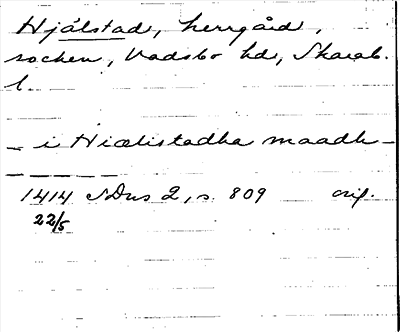 Hjälstad, herrgård,
socken, Vadsbo hd, Skarab.
l.
– i Hiælistadha maadh –
1414 SDns 2, s. 809 orig.
22/5